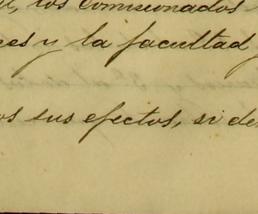 los comisionados
es y la facultad
os sus efectos, si de